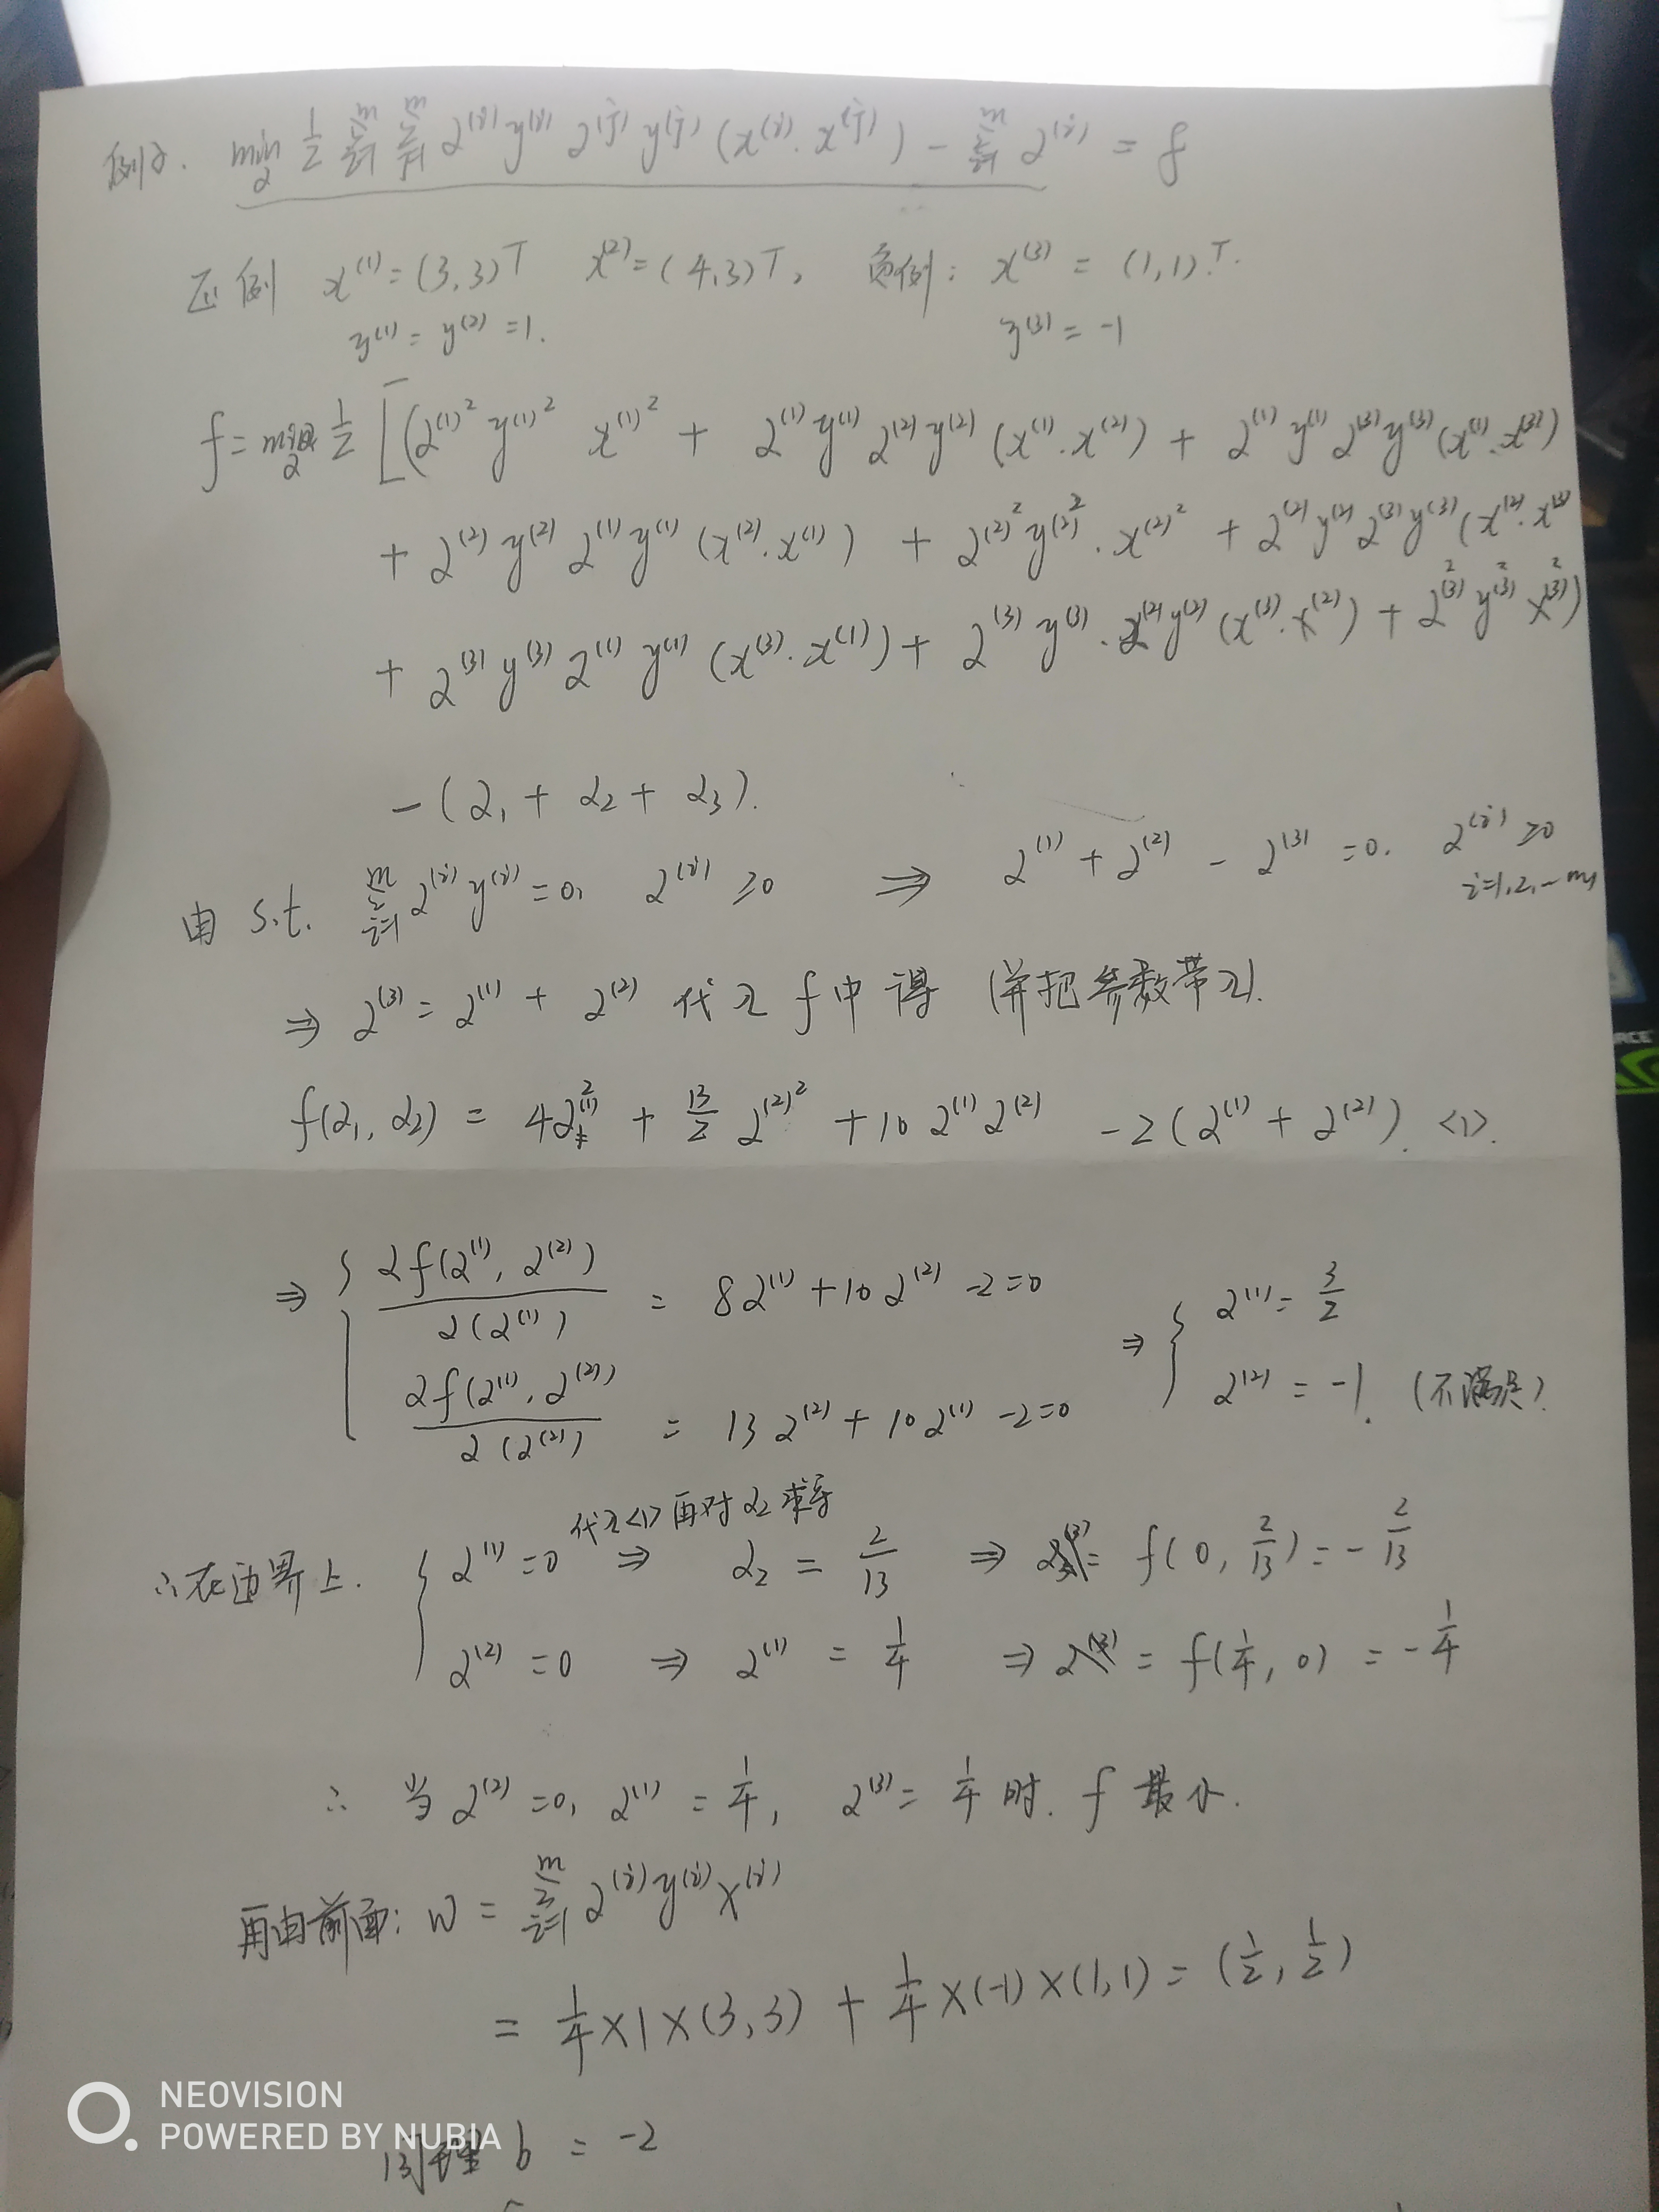 例2. min_α 1/2 Σ_{i=1}^m Σ_{j=1}^m α^(i) y^(i) α^(j) y^(j) (x^(i)·x^(j)) - Σ_{i=1}^m α^(i) = f
正例 x^(1) = (3,3)T x^(2) = (4,3)T, 负例: x^(3) = (1,1)T.
y^(1) = y^(2) = 1. y^(3) = -1
f = min_α 1/2 [(α^(1)² y^(1)² x^(1)² + α^(1)y^(1)α^(2)y^(2)(x^(1)·x^(2)) + α^(1)y^(1)α^(3)y^(3)(x^(1)·x^(3))
+ α^(2)y^(2)α^(1)y^(1)(x^(2)·x^(1)) + α^(2)²y^(2)²·x^(2)² + α^(2)y^(2)α^(3)y^(3)(x^(2)·x^(3)
+ α^(3)y^(3)α^(1)y^(1)(x^(3)·x^(1)) + α^(3)y^(3)·α^(2)y^(2)(x^(3)·x^(2)) + α^(3)²y^(3)²x^(3)²)
-(α₁ + α₂ + α₃).
由 s.t. Σ_{i=1}^m α^(i)y^(i) = 0, α^(i) ≥0 ⇒ α^(1) + α^(2) - α^(3) = 0. α^(i) ≥0
i=1,2,--m
⇒ α^(3) = α^(1) + α^(2) 代入 f 中得 (并把参数带入).
f(α₁, α₂) = 4α^(1)² + 13/2 α^(2)² + 10 α^(1)α^(2) - 2(α^(1) + α^(2)). <1>.
⇒ { ∂f(α^(1), α^(2)) / ∂(α^(1)) = 8α^(1) + 10α^(2) - 2 = 0
∂f(α^(1), α^(2)) / ∂(α^(2)) = 13α^(2) + 10α^(1) - 2 = 0
⇒ { α^(1) = 3/2
α^(2) = -1. (不满足).
代入<1>再对α₂求导
∴在边界上. { α^(1) = 0 ⇒ α₂ = 2/13 ⇒ = f(0, 2/13) = - 2/13
α^(2) = 0 ⇒ α^(1) = 1/4 ⇒ = f(1/4, 0) = - 1/4
∴ 当 α^(2) = 0, α^(1) = 1/4, α^(3) = 1/4 时. f 最小.
再由前面: w = Σ_{i=1}^m α^(i)y^(i)x^(i)
= 1/4 × 1 × (3,3) + 1/4 × (-1) × (1,1) = (1/2, 1/2)
同理 b = -2
NEOVISION
POWERED BY NUBIA